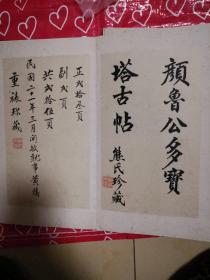 顏魯公多寶
塔古帖
熊氏珍藏
正文拾叁頁
副弍頁
共弍拾伍頁
民國二十一年三月
重裱珍藏